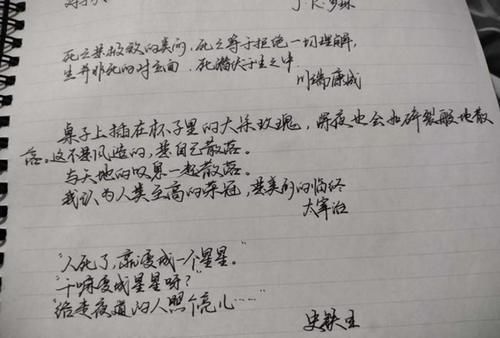 J·K·罗琳
死亡是极致的美丽,死亡等于拒绝一切理解,
生并非死的对立面,死潜伏于生之中。
川端康成
桌子上插在杯子里的大朵玫瑰,深夜也会如碎裂般地散
落。这不是风造的,是自己散落。
与天地的叹息一起散落。
我认为人类至高的荣冠,是美的临终
太宰治
"人死了,就变成一个星星。"
"干嘛变成星星呀?"
"给走夜道的人照个亮儿……"
史铁生